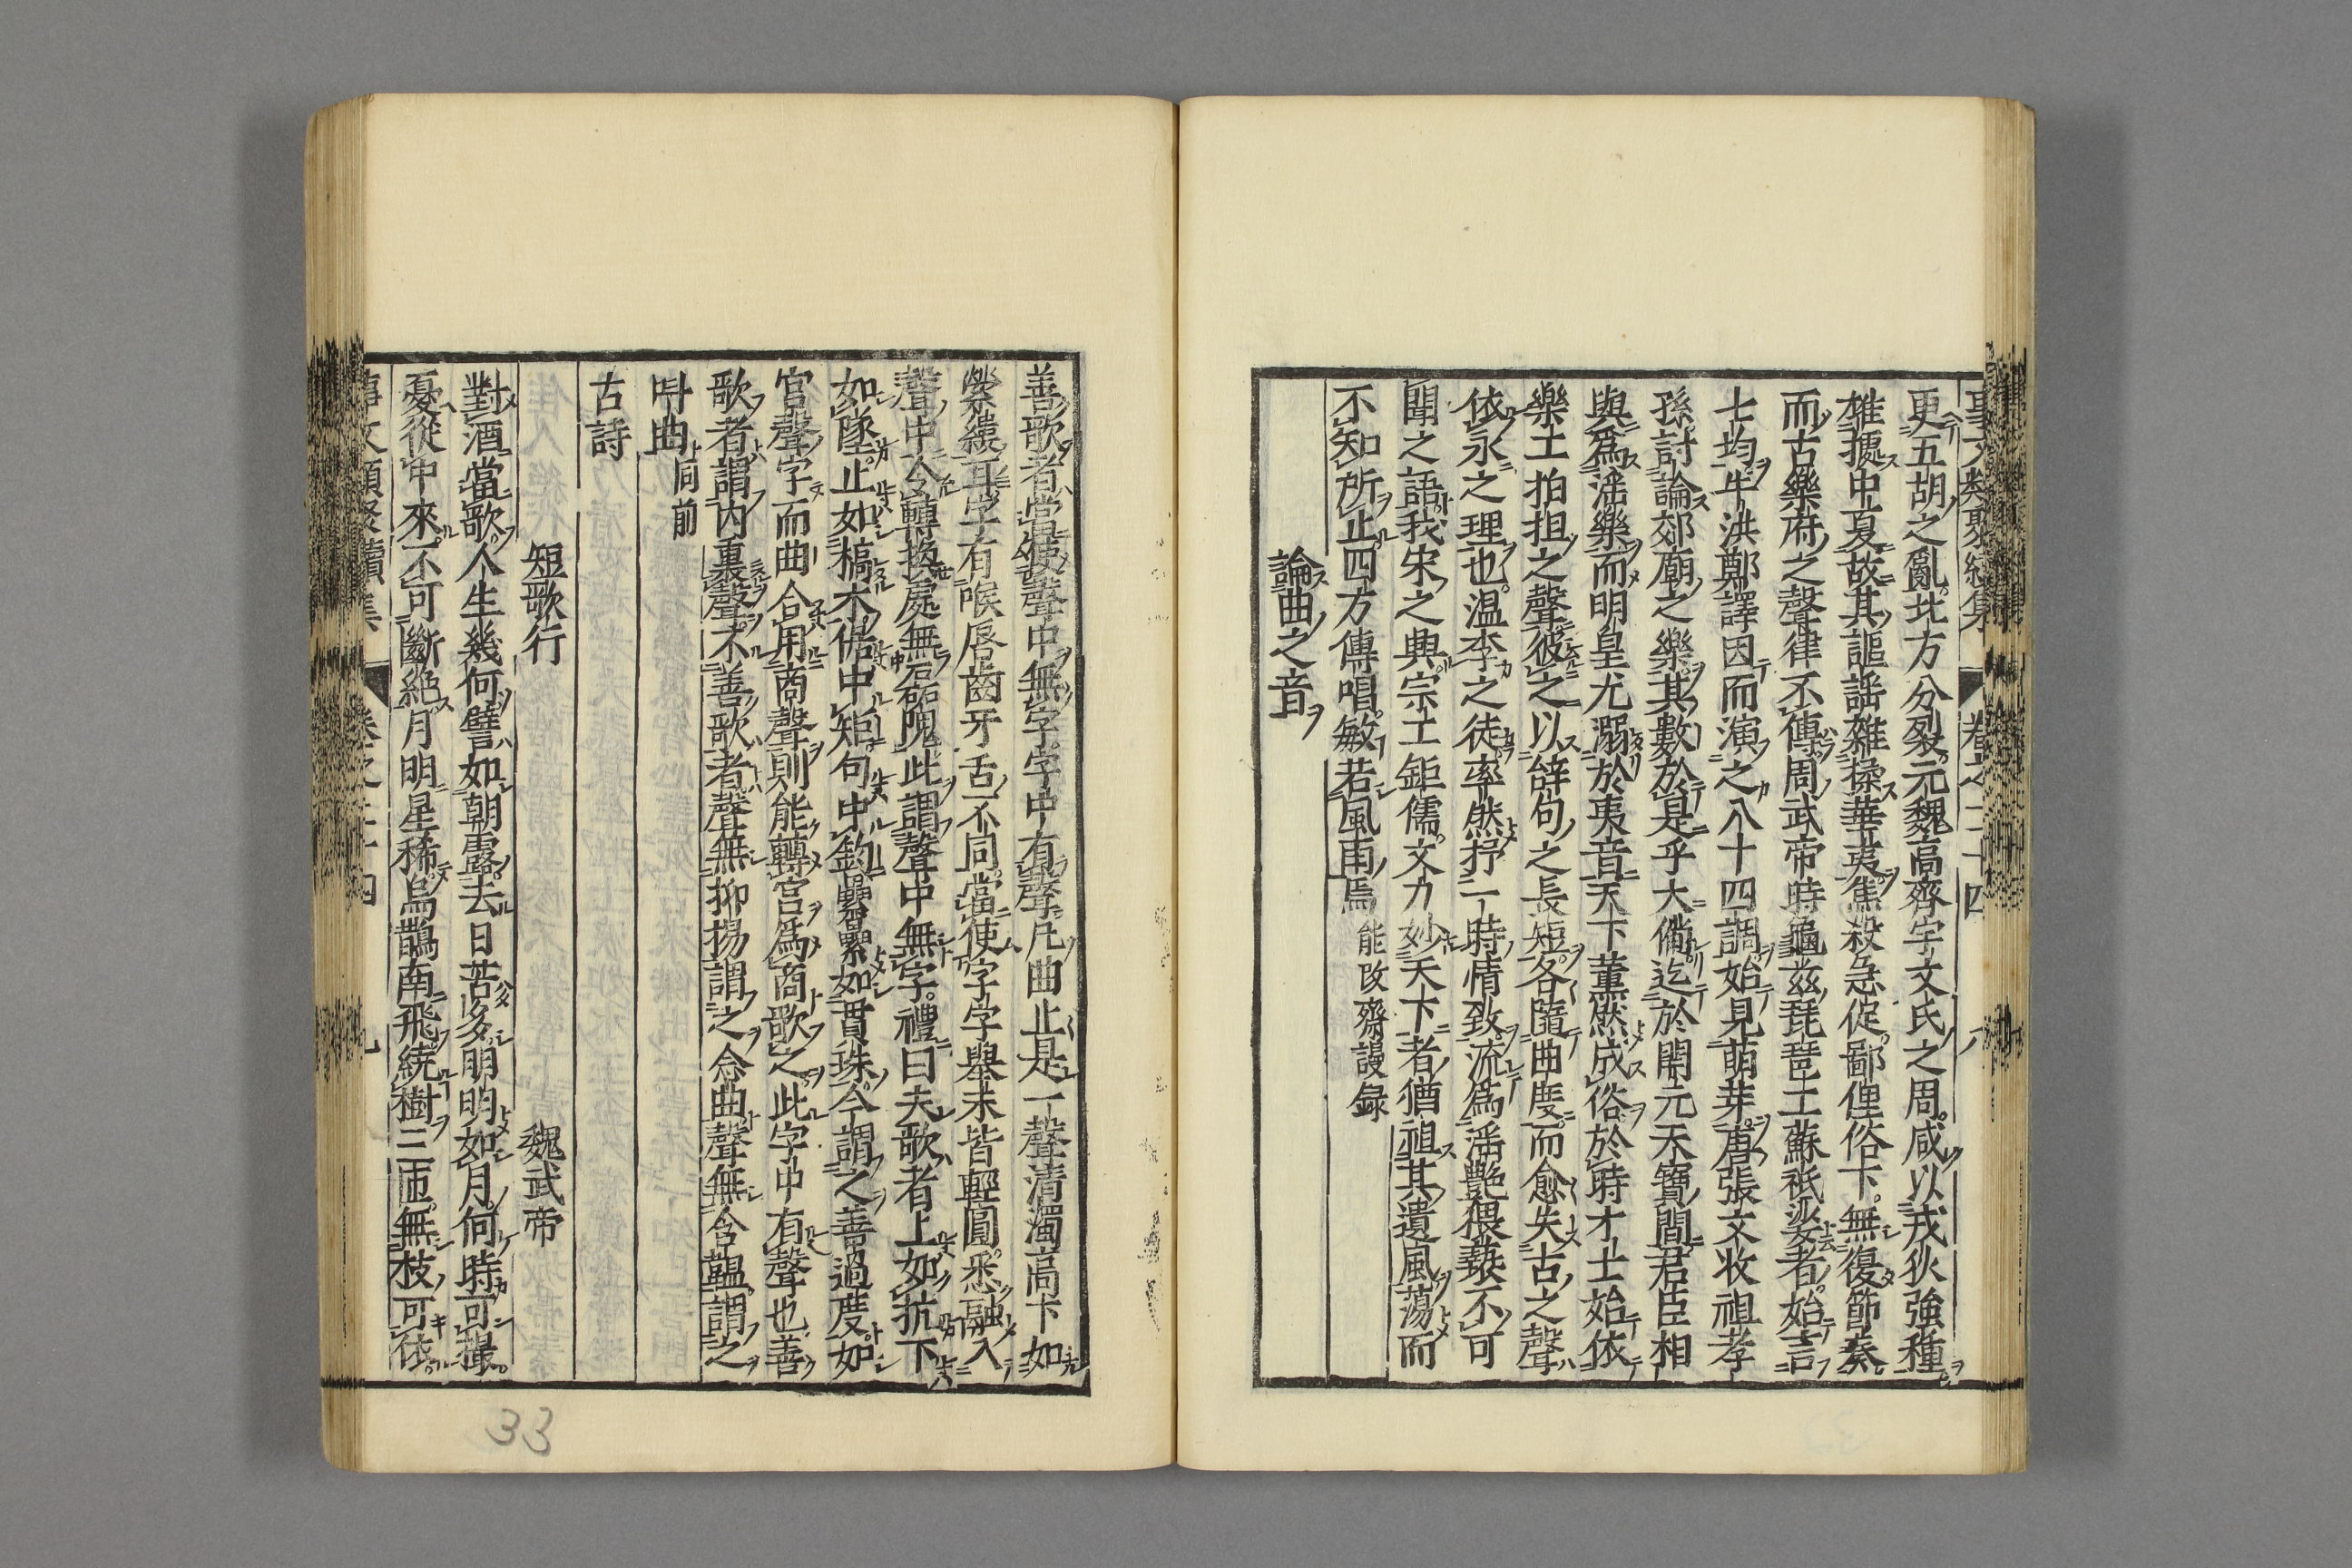 事文類聚續集 卷之二十四
更五胡之亂北方分裂元魏高齊宇文氏之周咸以戎狄強種
雄據中夏故其謳謠雜揉華夷焦殺急促鄙俚俗下無復節奏
而古樂府之聲律不傳周武帝時龜茲琵琶工蘇祇婆者始言
七均牛洪鄭譯因而演之八十四調始見萌芽唐張文收祖孝
孫討論郊廟之樂其數於是乎大備迄於開元天寶間君臣相
與爲淫樂而明皇尤溺於夷音天下薰然成俗於時才士始依
樂工拍担之聲彼之以辭句之長短各隨曲度而愈失古之聲
依永之理也溫李之徒率然抒一時情致流爲淫艷猥褻不可
聞之語我宋之興宗工鉅儒文力妙天下者猶祖其遺風蕩而
不知所止四方傳唱敏若風雨焉 能改齋謾録
論曲之音
善歌者當使聲中無字字中有聲凡曲止是一聲清濁高下如
縈縷耳字有喉唇齒牙舌不同當使字字舉末皆輕圓悉融入
聲中令轉換處無磊塊此謂聲中無字禮曰夫歌者上如抗下
如墜止如槁木倨中矩句中鉤纍纍如貫珠今謂之善過度如
宮聲字而曲合用商聲則能轉宮爲商歌之此字中有聲也善
歌者謂內裏聲不善歌者聲無抑揚謂之念曲聲無含韞謂之
叫曲 同前
古詩
短歌行 魏武帝
對酒當歌人生幾何譬如朝露去日苦多明明如月何時可掇
憂從中來不可斷絕月明星稀烏鵲南飛繞樹三匝無枝可依
事文類聚續集 卷之二十四 九
33